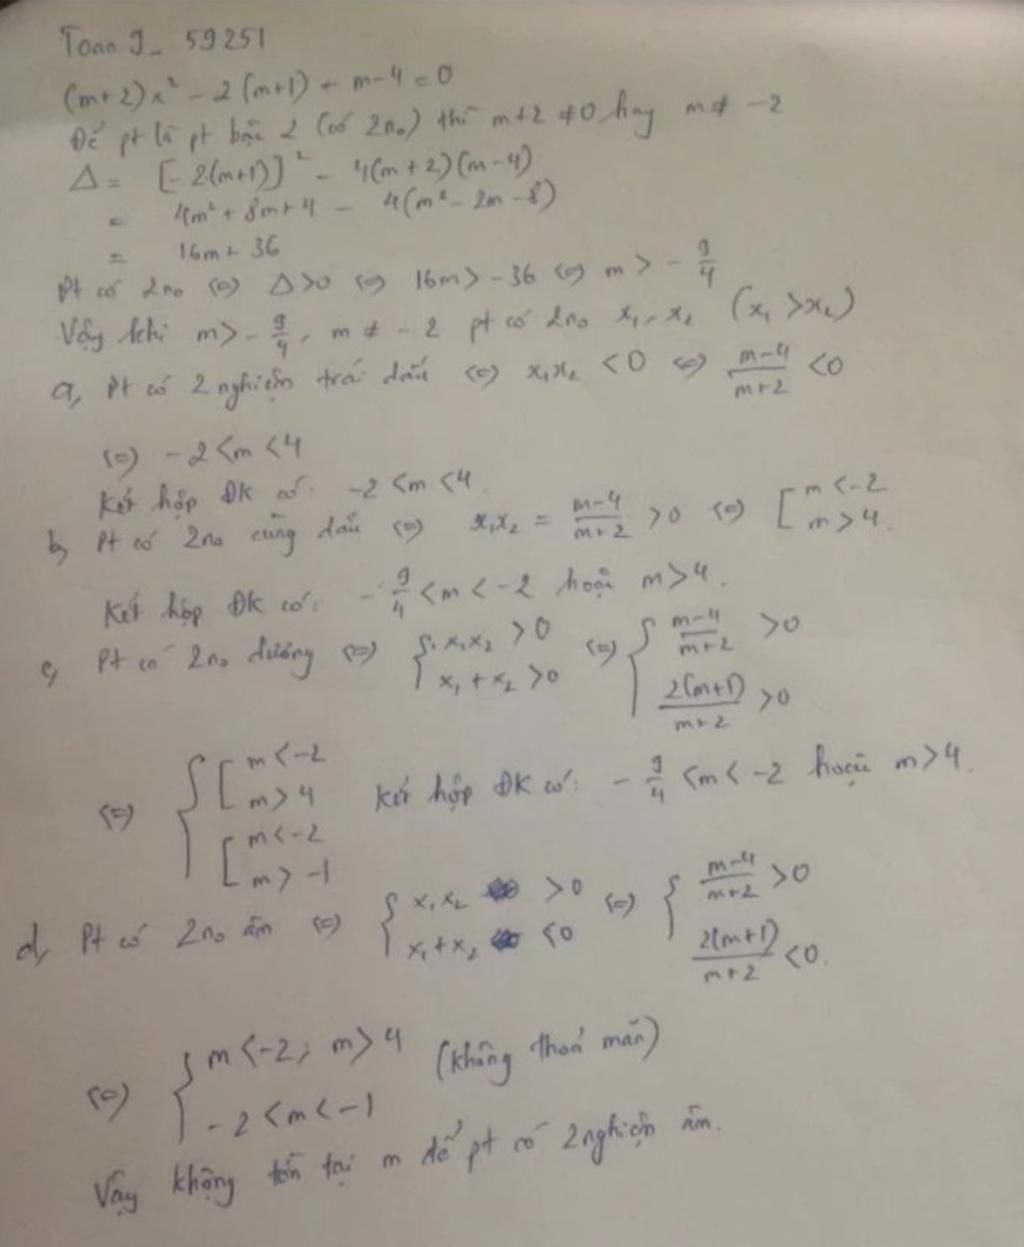 Toan 9_ 59251
(m+2)x² - 2(m+1) + m-4 = 0
Để pt là pt bậc 2 (có 2no) thì m+2 ≠0 hay m ≠ -2
Δ = [-2(m+1)]² - 4(m+2)(m-4)
= 4m² + 8m+4 - 4(m² - 2m - 8)
= 16m + 36
Pt có 2no (=) Δ>0 (=) 16m > -36 (=) m > - 9/4
Vậy khi m > - 9/4, m ≠ -2 pt có 2no x₁, x₂ (x₁ > x₂)
a, Pt có 2 nghiệm trái dấu (=) x₁x₂ < 0 (=) (m-4)/(m+2) < 0
(=) -2 < m < 4
Kết hợp ĐK có: -2 < m < 4.
b, Pt có 2no cùng dấu (=) x₁x₂ = (m-4)/(m+2) > 0 (=) [ m < -2 m > 4.
Kết hợp ĐK có: - 9/4 < m < -2 hoặc m > 4.
c, Pt có 2no dương (=) { x₁x₂ > 0 x₁ + x₂ > 0 (=) { (m-4)/(m+2) > 0 2(m+1)/(m+2) > 0
(=) { [ m < -2 m > 4 [ m < -2 m > -1 Kết hợp ĐK có: - 9/4 < m < -2 hoặc m > 4.
d, Pt có 2no âm (=) { x₁x₂ > 0 x₁ + x₂ < 0 (=) { (m-4)/(m+2) > 0 2(m+1)/(m+2) < 0.
(=) { m < -2; m > 4 -2 < m < -1 (không thoả mãn)
Vậy không tồn tại m để pt có 2 nghiệm âm.